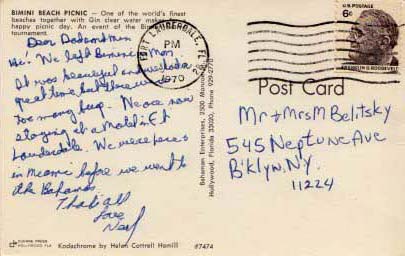 BIMINI BEACH PICNIC — One of the world's finest
beaches together with Gin clear water make
happy picnic day. An event of the Bimini
tournament.
Dear Dad and Mom
Hi! We left Bimini Mon.
It was beautiful and we had a
great time but there were
too many bugs. We are now
staying at a Motel in Ft
Lauderdale. We were
in Miami before we went to
the Bahamas.
That's all
Love
FORT LAUDERDALE, FL
PM
1970
U.S. POSTAGE
6¢
FRANKLIN D. ROOSEVELT
Post Card
Mr + Mrs M Belitsky
545 Neptune Ave
B'klyn, N.Y.
11224
Bahamas Enterprises, 2500
Hollywood, Florida 33020 Phone 929-2070
Kodachrome by Helen Cottrell Hamill #7474